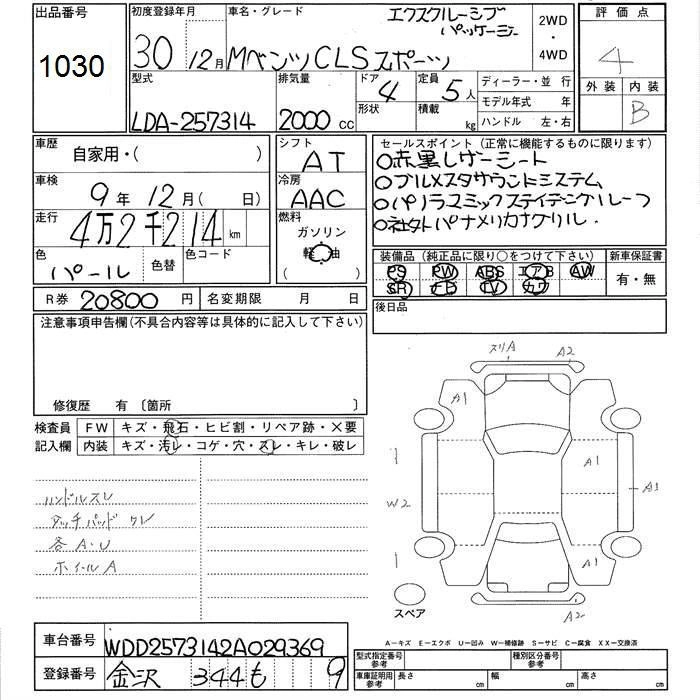 出品番号
1030
初度登録年月
30 12月
車名・グレード
MベンツCLSスポーツ
エクスクルーシブ
パッケージ
2WD
・
4WD
評価点
4
外装 内装
B
型式
LDA-257314
排気量
2000 cc
ドア
4
形状
定員
5人
積載
kg
ディーラー・並行
モデル年式 年
ハンドル 左・右
車歴
自家用・( )
シフト
AT
車検
9年 12月 ( 日)
冷房
AAC
走行
4万2千214 km
燃料
ガソリン
(軽油)
色
パール
色替
色コード
R券 20800 円
名変期限 月 日
セールスポイント (正常に機能するものに限ります)
○赤黒レザーシート
○ブルメスタサウンドシステム
○パノラミックスライディングルーフ
○社外パナメリカナグリル.
装備品 (純正品に限り○をつけて下さい)
PS PW ABS エアB AW
SR ナビ TV カワ
新車保証書
有・無
後日品
注意事項申告欄(不具合内容等は具体的に記入して下さい)
修復歴 有 〔箇所 〕
検査員
記入欄
FW キズ・飛石・ヒビ割・リペア跡・×要
内装 キズ・汚レ・コゲ・穴・スレ・キレ・破レ
ハンドルスレ
タッチパッド ワレ
各A・U
ホイールA
スリA
A2
A1
A1
A1
W2
A1
A2
スペア
A-キズ E-エクボ U-凹み W-補修跡 S-サビ C-腐食 XX-交換済
車台番号 WDD2573142A029369
登録番号 金沢 344 も 9
型式指定番号
参考
種別区分番号
参考
車庫証明用
参考
長さ cm 幅 cm 高さ cm